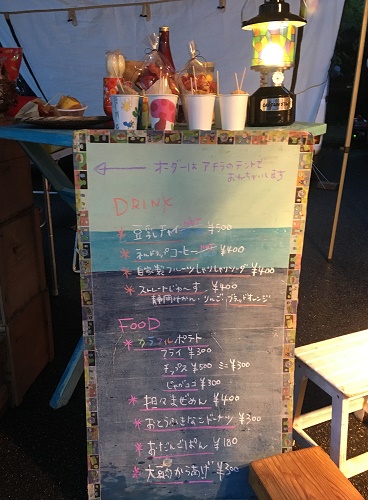 オーダーは アドラのテントで
おねがいします
DRINK
* 豆乳チャイ HOT ¥500
* ネルドリップコーヒー HOT ¥400
* 自家製フルーツしゃりしゃりソーダ ¥400
* ストレートじゅーす ¥400
静岡みかん・りんご・ブラッドオレンジ
FOOD
* カラフルポテト
フライ ¥300
チップス ¥500 ミニ ¥300
じゃがココ ¥300
* 担々まぜめん ¥400
* おとうふなドーナツ ¥300
* おだんごぱん ¥180
* 大きめからあげ ¥300